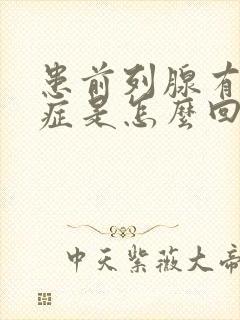 患前列腺有
症是怎麼回
中天紫薇大帝